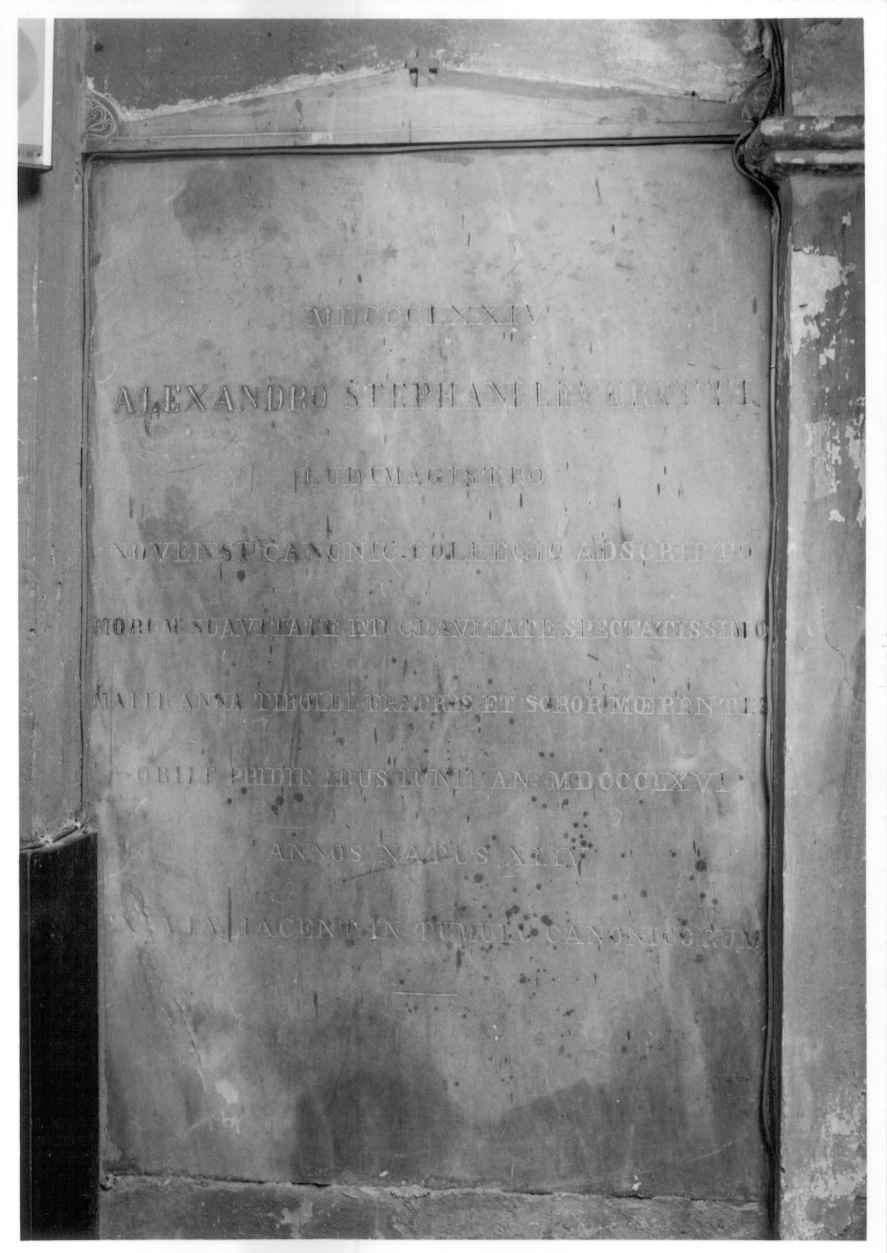 MDCCCLXXIV
ALEXANDRO STEPHANI LEVERATTI
LUDIMAGISTRO
NOVENSI CANONIC. COLLEGIO ADSCRIPTO
MORUM SUAVITATE ET GRAVITATE SPECTATISSIMO
ANNA TIBOLDI FRATRES ET SOROR MŒRENTES
OBIIT PRIDIE IDUS IUNII AN: MDCCCLXVI
ANNOS NATUS XLIV
IACENT IN TUMULO CANONICORUM